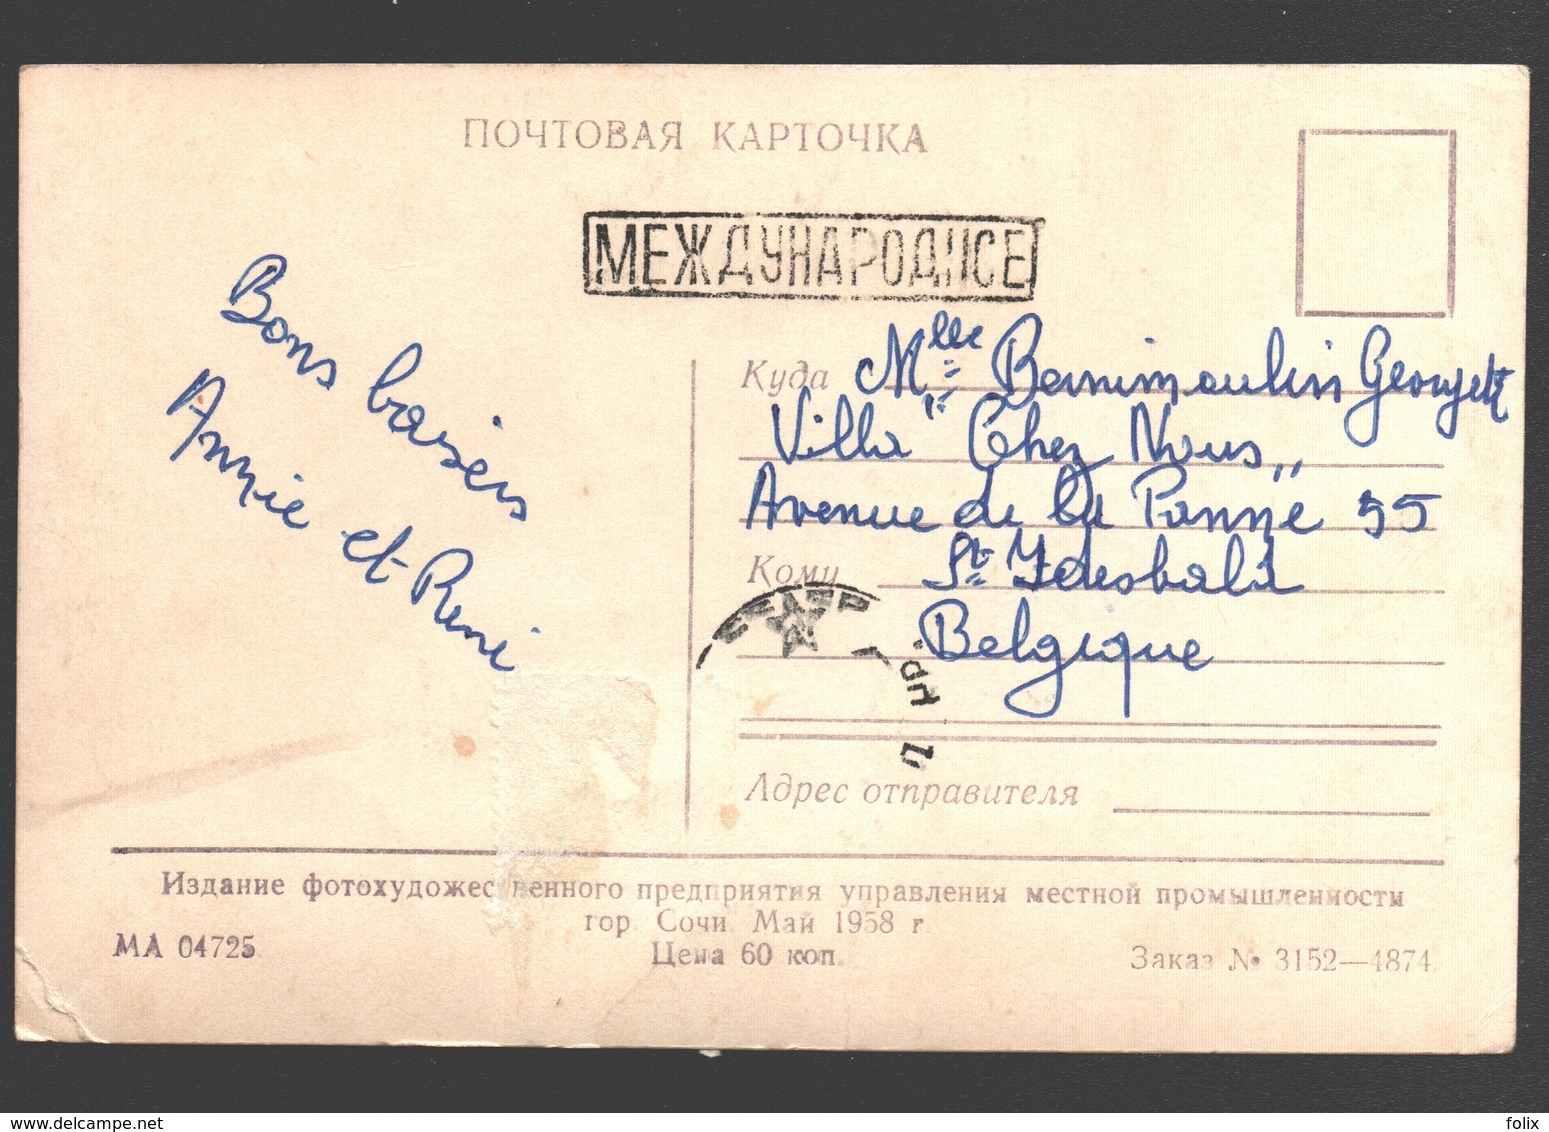 ПОЧТОВАЯ КАРТОЧКА
МЕЖДУНАРОДНОЕ
Bons baisers
Annie et René
Куда Mlle Banimoulin Georgette
Villa "Chez Nous"
Avenue de la Panne 55
Кому St Idesbald
Belgique
Адрес отправителя
Издание фотохудожественного предприятия управления местной промышленности
гор. Сочи. Май 1958 г.
МА 04725. Цена 60 коп. Заказ № 3152—4874.
folix